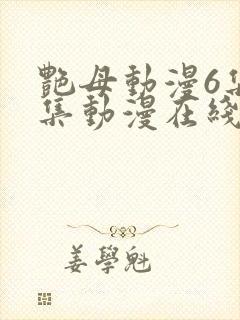 艷母動漫6集
集動漫在綫
姜學魁